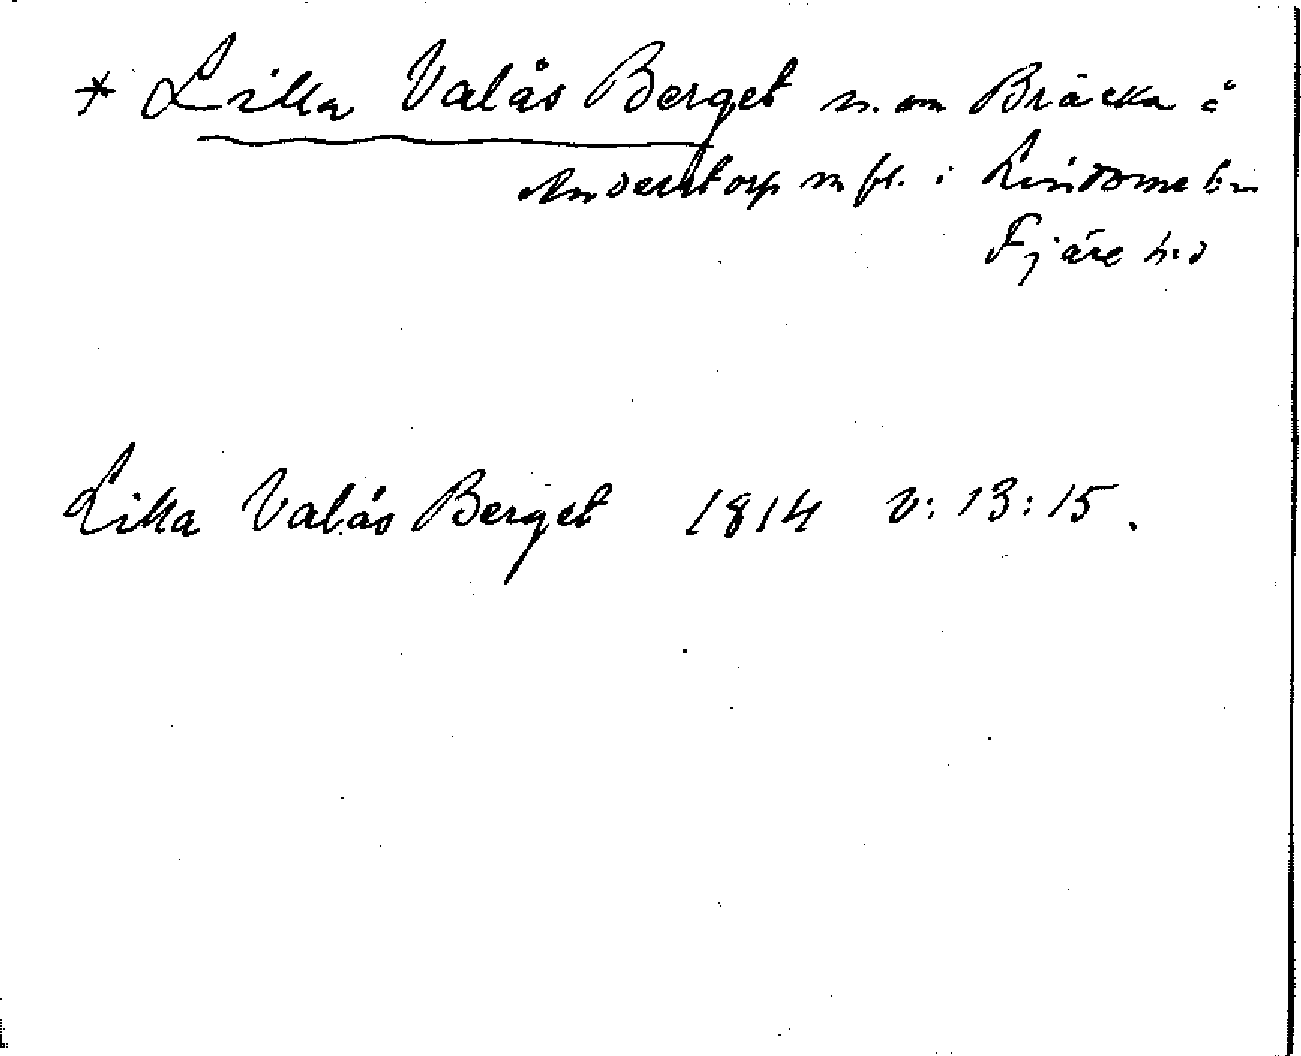 * Lilla Valås Berget n. om Bräcka å
Anderstorp m fl. i Lindome sn
Fjäre hd
Lilla Valås Berget 1814 v: 13: 15.